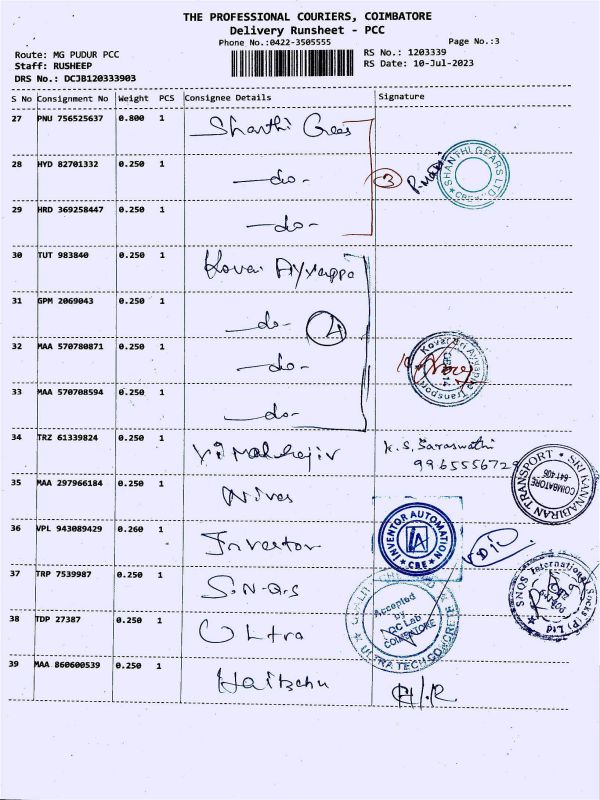 THE PROFESSIONAL COURIERS, COIMBATORE
Delivery Runsheet - PCC
Phone No.:0422-3505555
Page No.:3
Route: MG PUDUR PCC
RS No.: 1203339
Staff: RUSHEEP
RS Date: 10-Jul-2023
DRS No.: DCJB120333903
S No Consignment No Weight PCS Consignee Details Signature
27 PNU 756525637 0.800 1 Shanthi Gears
28 HYD 82701332 0.250 1 -do- 3 SHANTHI GEARS LTD CBE
29 HRD 369258447 0.250 1 -do-
30 TUT 983840 0.250 1 Kovai Ayyappa
31 GPM 2069043 0.250 1 -do- 4
32 MAA 570780871 0.250 1 -do- Kovai Sri Ayyappa Transport
33 MAA 570708594 0.250 1 -do-
34 TRZ 61339824 0.250 1 K.S. Saraswathi
996555672
SRI KANNABIRAN TRANSPORT COIMBATORE 641 406
35 MAA 297966184 0.250 1
36 VPL 943089429 0.260 1 Inventor INVENTOR AUTOMATION CBE IA
37 TRP 7539987 0.250 1 S.N.Q.S SNQS International Socks (P) Ltd
38 TDP 27387 0.250 1 Ultra Accepted by QC Lab COIMBATORE ULTRA TECH CONCRETE
39 MAA 860600539 0.250 1